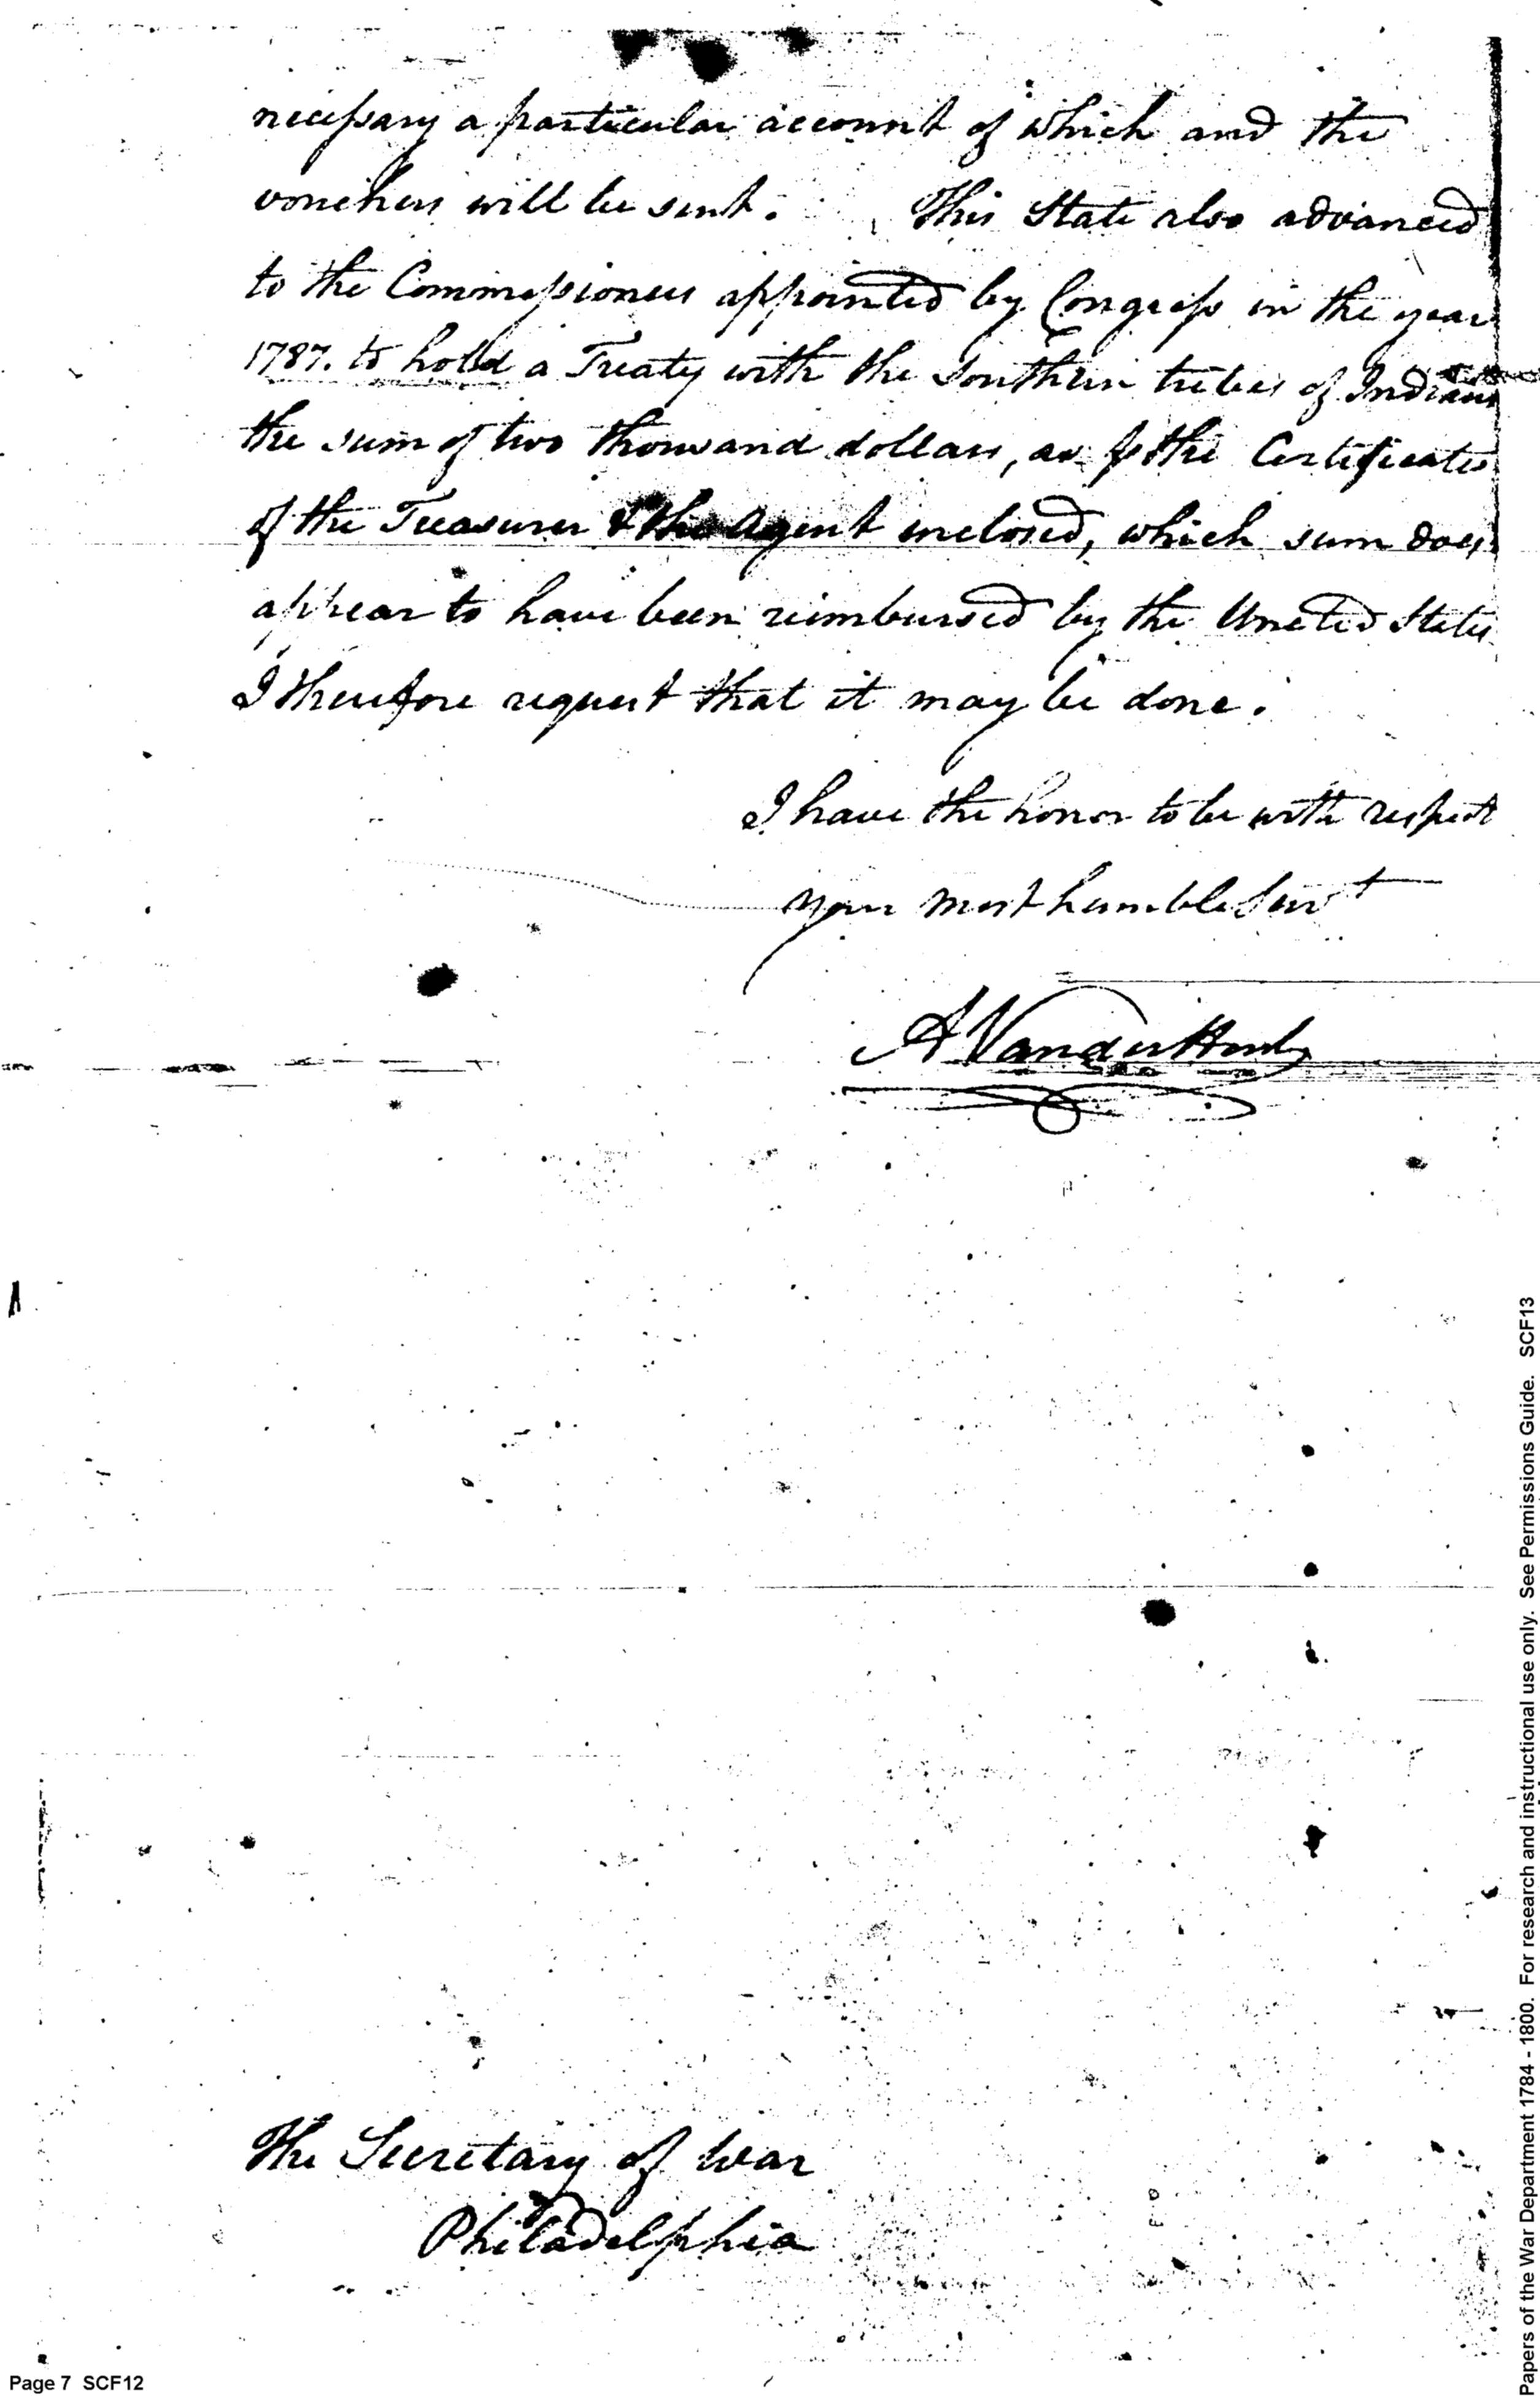 necessary a particular account of which and the
vouchers will be sent. This State also advanced
to the Commissioners appointed by Congress in the year
1787. to hold a Treaty with the Southern tribes of Indians
the sum of two thousand dollars, as the Certificates
of the Treasurer & the Agent inclosed, which sum does
appear to have been reimbursed by the United States
I therefore request that it may be done.
I have the honor to be with respect
your most humble Servt
A Vander Horst
The Secretary of War
Philadelphia
Page 7 SCF12
Papers of the War Department 1784 - 1800. For research and instructional use only. See Permissions Guide. SCF13